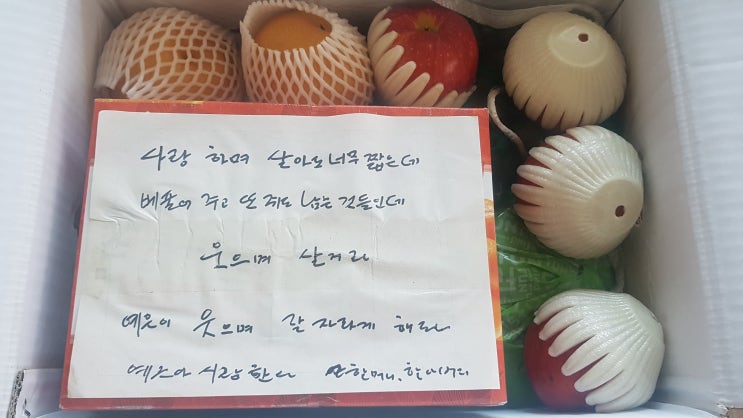 사랑 하며 살아도 너무 짧은데
베풀어 주고 또 줘도 남는 것들인데
웃으며 살거라
예은이 웃으며 잘 자라게 해라
사랑한다 할머니, 할아버지